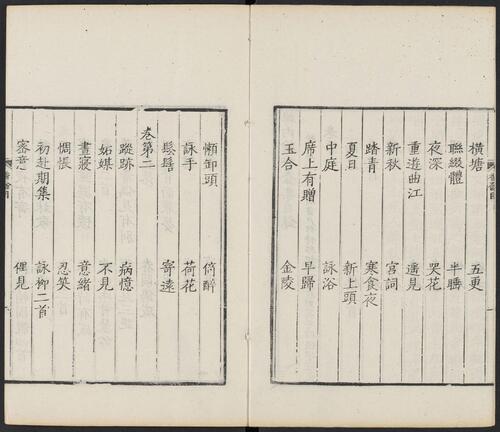 橫塘　五更
聯綴體　半睡
夜深　哭花
重遊曲江　遙見
新秋　宮詞
踏青　寒食夜
夏日　新上頭
中庭　詠浴
席上有贈　早歸
玉合　金陵
懶卸頭　倚醉
詠手　荷花
鬆髻　寄遠
卷第二
蹤跡　病憶
妬媒　不見
晝寢　意緒
惆悵　忍笑
初赴期集　詠柳二首
密意　偶見